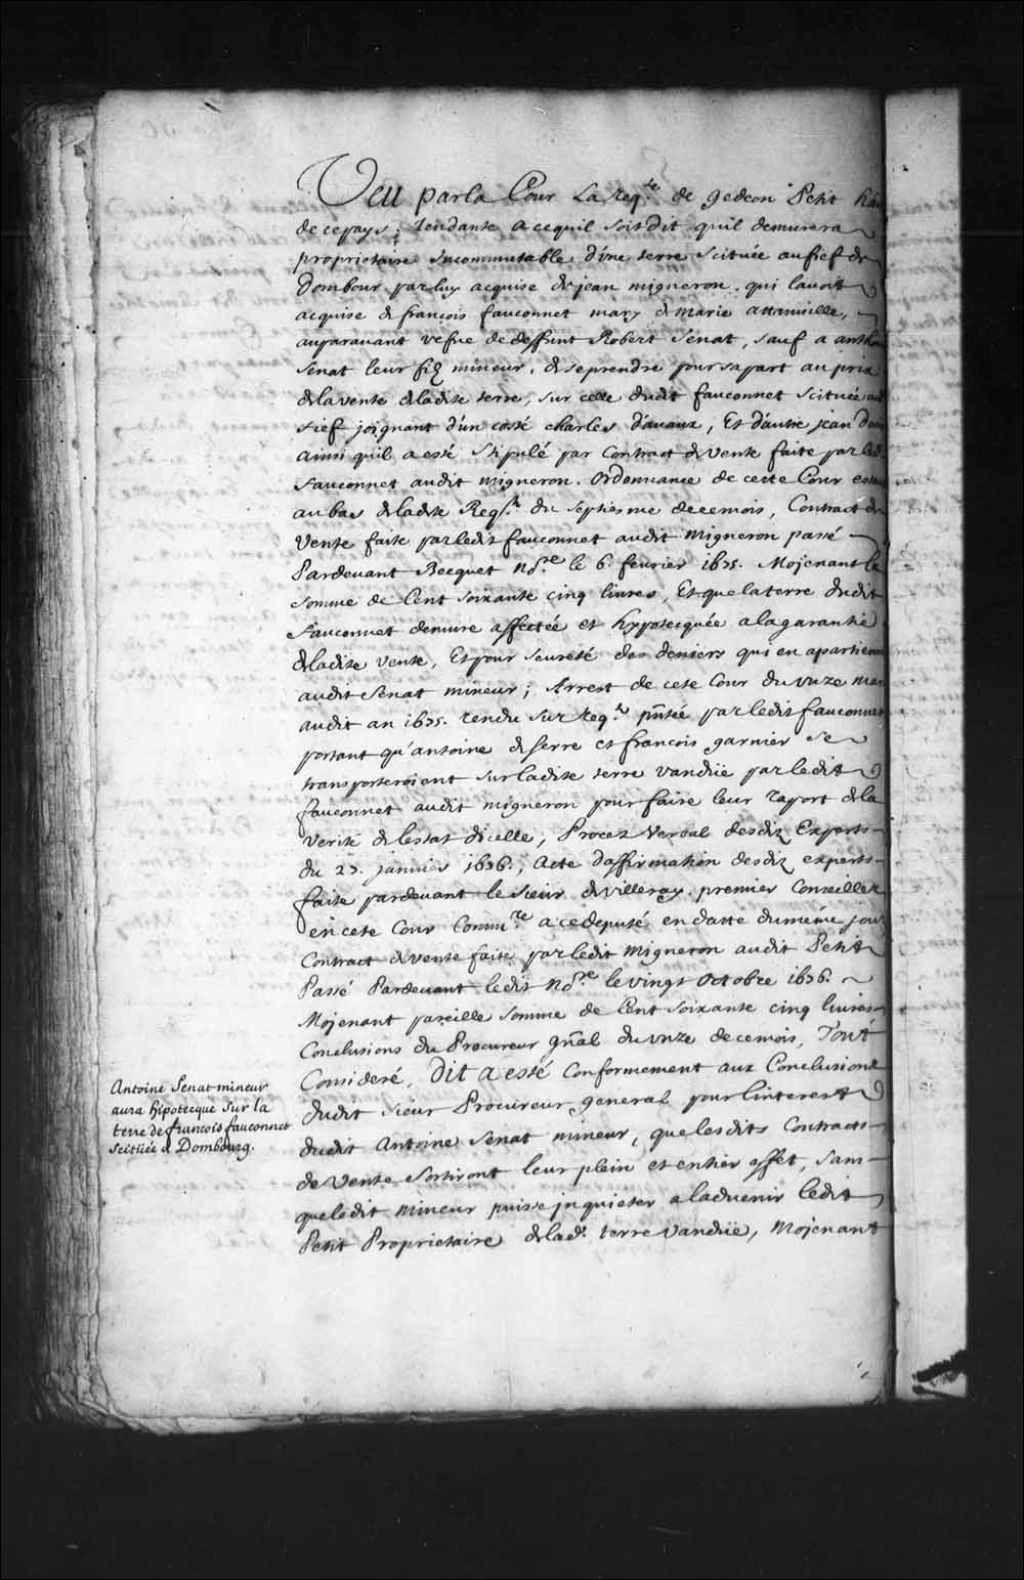 Veu par la Cour La Req.te de gedeon Petit
de ce pays, tendante a ce quil soit dit quil demurera
proprietaire Incommutable d'une terre scituée au fief de
Dombour par luy acquise de jean migneron, qui lavoit
acquise de francois fauconnet mary de marie attanville,
auparavant vefue de deffunt Robert Senat, sauf a anthoi
Senat leur filz mineur, de se prendre pour sa part au prix
de la vente de ladite terre, sur celle dudit fauconnet scituée au
fief joignant d'un costé charles davaux, Et d'autre jean
ainsi quil a esté stipulé par Contract de vente faite par led.
fauconnet audit migneron. Ordonnance de cette Cour estant
au bas de ladite Req.te du septiesme de ce mois, Contract de
Vente faite par ledit fauconnet audit migneron passé
Pardevant Becquet No.re le 6. fevrier 1675. Mojenant la
somme de Cent soixante cinq livres, Et que la terre dudit
fauconnet demure affectée et hypotecquée a la garantie
de ladite vente, Et pour seureté des deniers qui en apartiennent
audit Senat mineur; Arrest de cete Cour du unze mars
audit an 1675. rendu sur Req.te pñtée par ledit fauconnet
portant qu'antoine de serre et francois garnier se
transporteroient sur ladite terre vandüe par ledit
fauconnet audit migneron pour faire leur raport de la
verité de lestat dicelle, Procez Verbal desdiz Experts
du 23. janvier 1676., Acte d'affirmation desdiz experts
faite pardevant le sieur de villeray premier Conseiller
en cete Cour Commi.re a ce deputé en datte du méme jour
Contract de vente faite par ledit Migneron audit Petit
Passé Pardevant ledit No.re le vingt Octobre 1676.
Mojenant pareille somme de Cent soixante cinq livres
Conclusions du Procureur gñal du unze de ce mois, Tout
Consideré, Dit a esté Conformement aux Conclusions
dudit sieur Procureur general pour linterest
dudit Antoine Senat mineur, que lesdits Contracts
de Vente sortiront leur plein et entier effet, sans
que ledit mineur puisse jnquieter a ladvenir ledit
Petit Proprietaire de lad.e terre vandüe, Mojenant
Antoine Senat mineur
aura hipotecque sur la
terre de francois fauconnet
scituée a Dombourg.